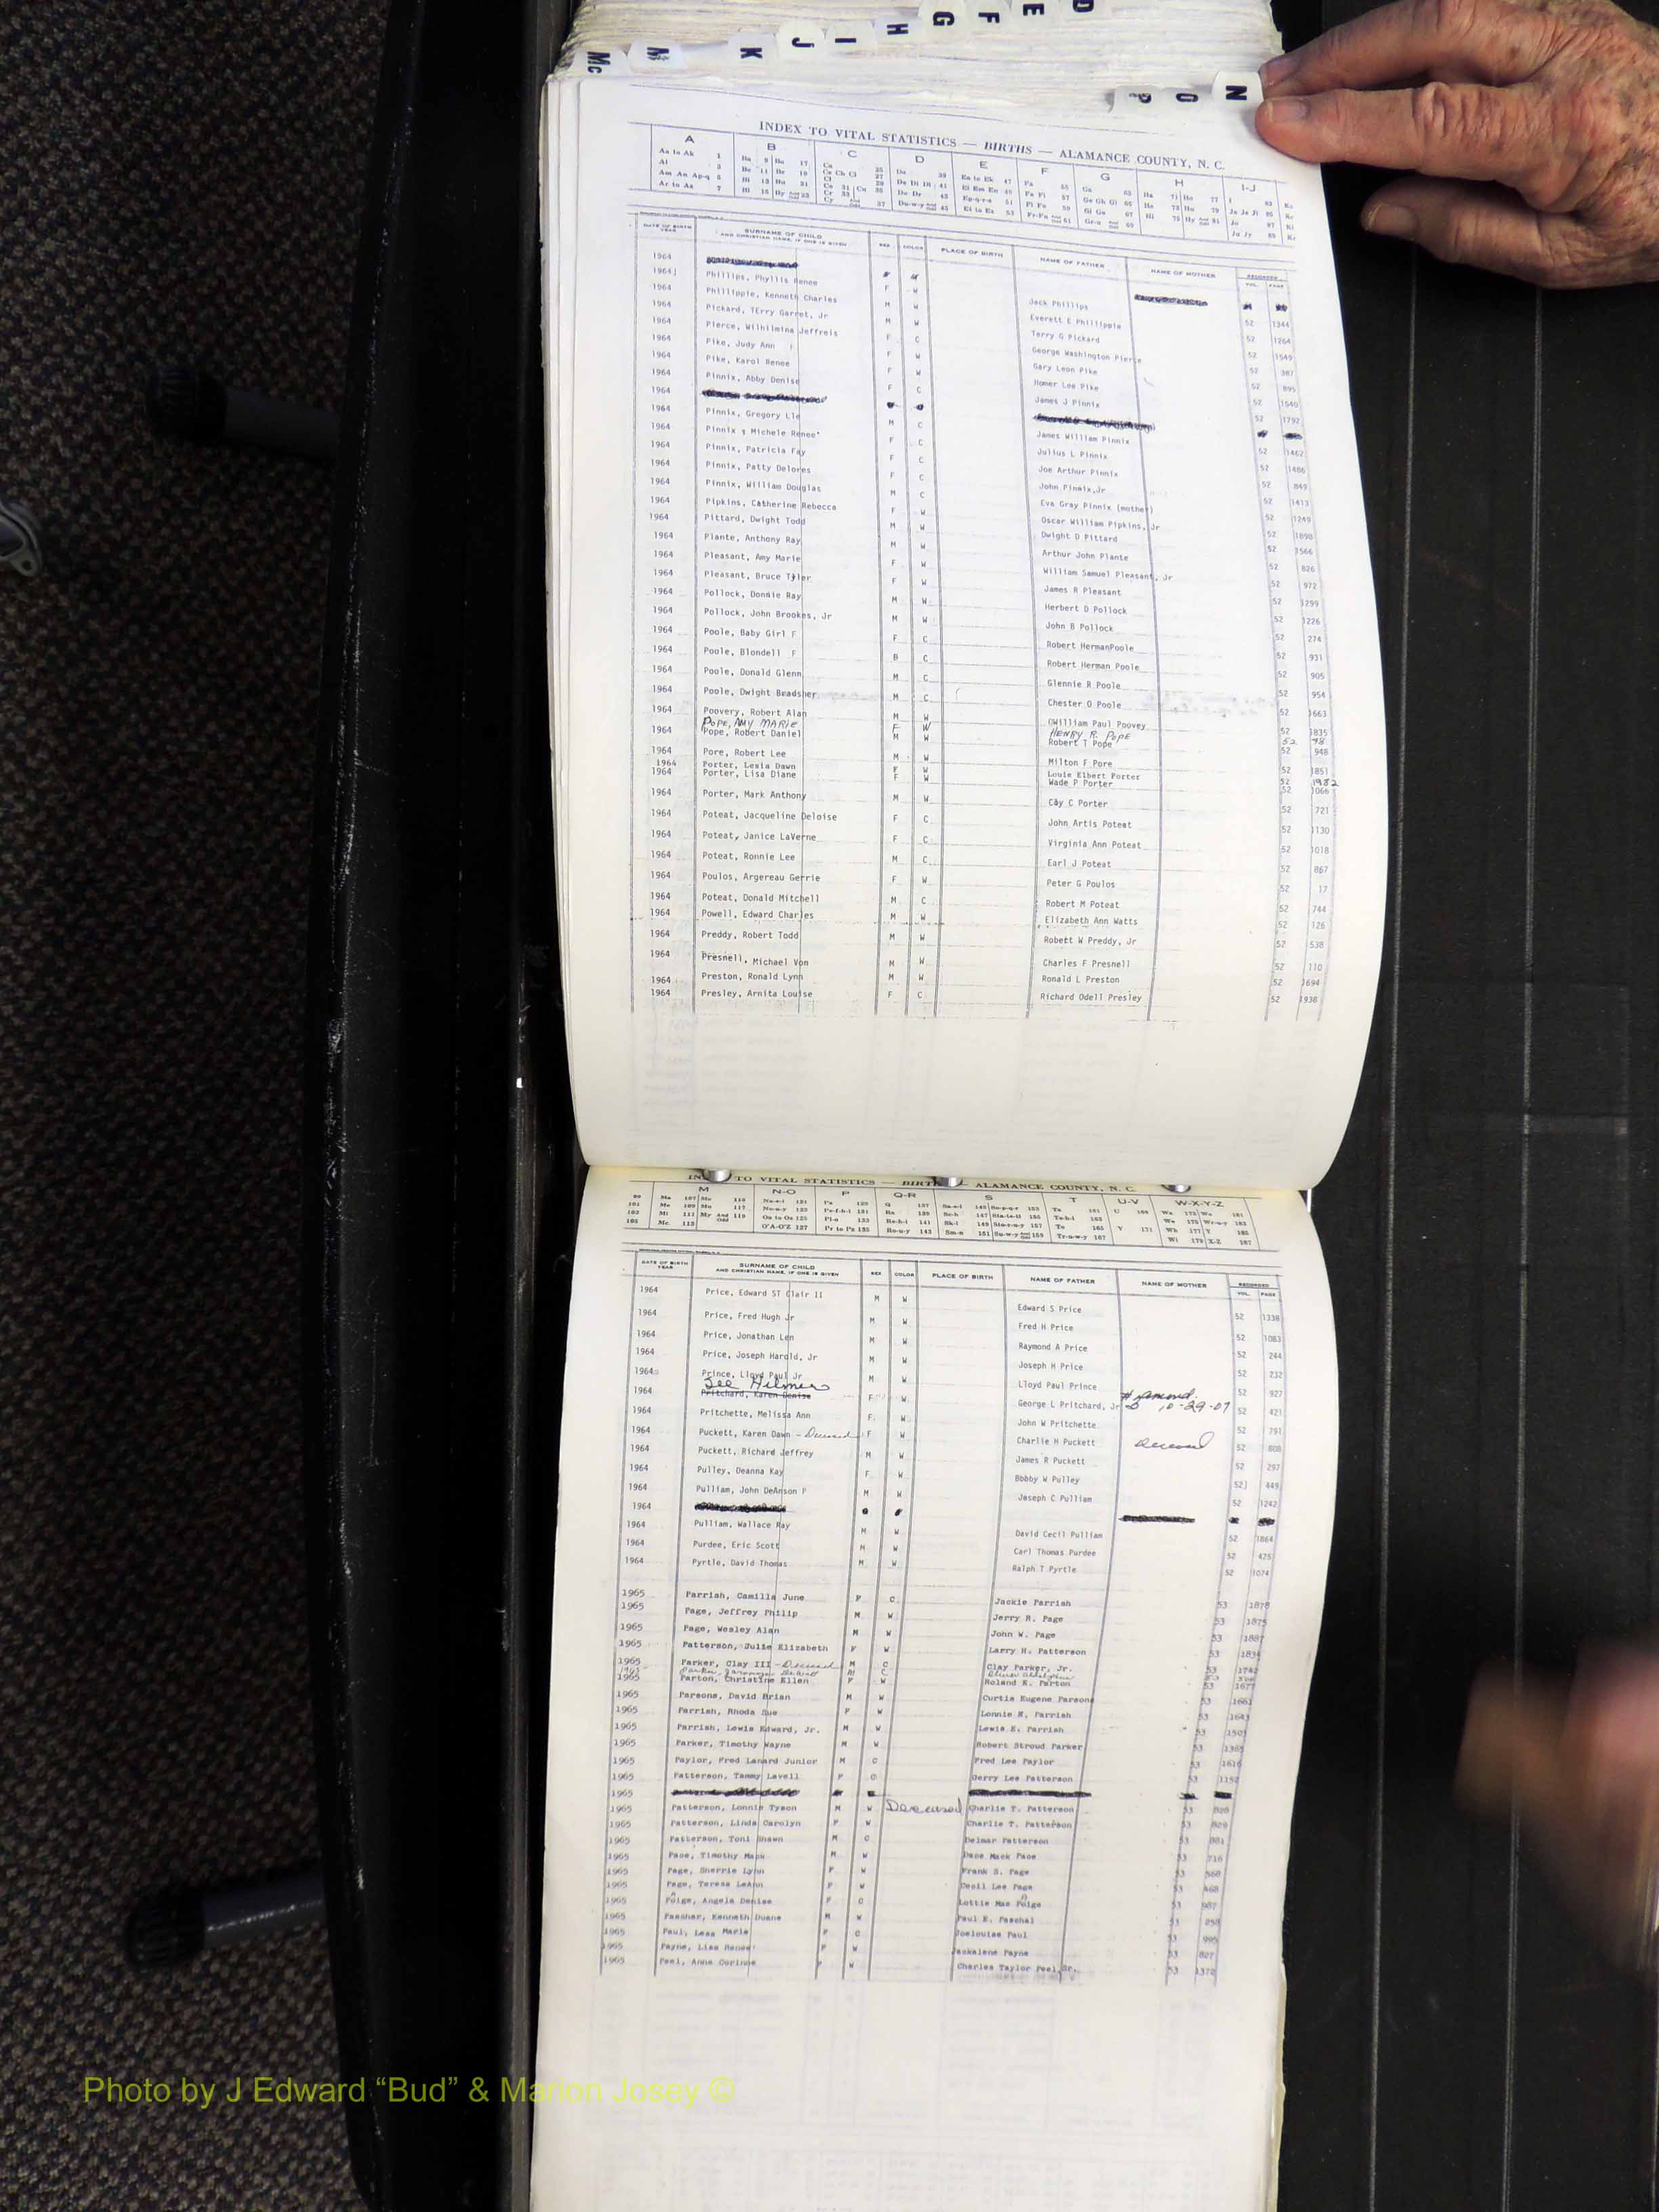 D
E
F
G
H
I
J
K
M
Mc
N
O
P
INDEX TO VITAL STATISTICS — BIRTHS — ALAMANCE COUNTY, N. C.
A B C D E F G H I-J
DATE OF BIRTH YEAR SURNAME OF CHILD AND CHRISTIAN NAME, IF ONE IS GIVEN SEX COLOR PLACE OF BIRTH NAME OF FATHER NAME OF MOTHER RECORDED VOL. PAGE
1964
1964 Phillips, Phyllis Renee F W Jack Phillips 52 1344
1964 Phillippie, Kenneth Charles M W Everett E Phillippie 52 1264
1964 Pickard, TErry Garret, Jr M W Terry G Pickard 52 1549
1964 Pierce, Wilhilmina Jeffreis F C George Washington Pierce 52 387
1964 Pike, Judy Ann F W Gary Leon Pike 52 895
1964 Pike, Karol Renee F W Homer Lee Pike 52 1540
1964 Pinnix, Abby Denise F C James J Pinnix 52 1792
1964
1964 Pinnix, Gregory Lle M C James William Pinnix 52 1462
1964 Pinnix, Michele Renee' F C Julius L Pinnix 52 1486
1964 Pinnix, Patricia Fay F C Joe Arthur Pinnix 52 849
1964 Pinnix, Patty Delores F C John Pinnix, Jr 52 1413
1964 Pinnix, William Douglas M C Eva Gray Pinnix (mother) 52 1249
1964 Pipkins, Catherine Rebecca F W Oscar William Pipkins, Jr 52 1898
1964 Pittard, Dwight Todd M W Dwight D Pittard 52 1566
1964 Plante, Anthony Ray M W Arthur John Plante 52 826
1964 Pleasant, Amy Marie F W William Samuel Pleasant, Jr 52 972
1964 Pleasant, Bruce Tyler F W James R Pleasant 52 1299
1964 Pollock, Donnie Ray M W Herbert D Pollock 52 1226
1964 Pollock, John Brookes, Jr M W John B Pollock 52 274
1964 Poole, Baby Girl F F C Robert HermanPoole 52 931
1964 Poole, Blondell F B C Robert Herman Poole 52 905
1964 Poole, Donald Glenn M C Glennie R Poole 52 954
1964 Poole, Dwight Bradsher M C Chester O Poole 52 1663
1964 Poovery, Robert Alan M W William Paul Poovey 52 1835
POPE, AMY MARIE F W HENRY R. POPE 52 98
1964 Pope, Robert Daniel M W Robert T Pope 52 948
1964 Pore, Robert Lee M W Milton F Pore 52 1851
1964 Porter, Lesia Dawn F W Louie Elbert Porter 52 1982
1964 Porter, Lisa Diane F W Wade P Porter 52 1066
1964 Porter, Mark Anthony M W Cay C Porter 52 721
1964 Poteat, Jacqueline Deloise F C John Artis Poteat 52 1130
1964 Poteat, Janice LaVerne F C Virginia Ann Poteat 52 1018
1964 Poteat, Ronnie Lee M C Earl J Poteat 52 867
1964 Poulos, Argereau Gerrie F W Peter G Poulos 52 17
1964 Poteat, Donald Mitchell M C Robert M Poteat 52 744
1964 Powell, Edward Charles M W Elizabeth Ann Watts 52 126
1964 Preddy, Robert Todd M W Robett W Preddy, Jr 52 538
1964 Presnell, Michael Von M W Charles F Presnell 52 110
1964 Preston, Ronald Lynn M W Ronald L Preston 52 1694
1964 Presley, Arnita Louise F C Richard Odell Presley 52 1938
TO VITAL STATISTICS — ALAMANCE COUNTY, N. C.
M N-O P Q-R S T U-V W-X-Y-Z
DATE OF BIRTH YEAR SURNAME OF CHILD AND CHRISTIAN NAME, IF ONE IS GIVEN SEX COLOR PLACE OF BIRTH NAME OF FATHER NAME OF MOTHER RECORDED VOL. PAGE
1964 Price, Edward ST Clair II M W Edward S Price 52 1338
1964 Price, Fred Hugh Jr M W Fred H Price 52 1083
1964 Price, Jonathan Len M W Raymond A Price 52 244
1964 Price, Joseph Harold, Jr M W Joseph H Price 52 232
1964 Prince, Lloyd Paul Jr M W Lloyd Paul Prince 52 927
See
1964 Pritchard, Karen Denise F W George L Pritchard, Jr 10-29-07 52 421
1964 Pritchette, Melissa Ann F W John W Pritchette 52 791
1964 Puckett, Karen Dawn - Deceased F W Charlie H Puckett Deceased 52 808
1964 Puckett, Richard Jeffrey M W James R Puckett 52 297
1964 Pulley, Deanna Kay F W Bobby W Pulley 52 449
1964 Pulliam, John DeAnson M W Joseph C Pulliam 52 1242
1964
1964 Pulliam, Wallace Ray M W David Cecil Pulliam 52 1864
1964 Purdee, Eric Scott M W Carl Thomas Purdee 52 475
1964 Pyrtle, David Thomas M W Ralph T Pyrtle 52 1074
1965 Parrish, Camilla June F C Jackie Parrish 53 1878
1965 Page, Jeffrey Philip M W Jerry R. Page 53 1875
1965 Page, Wesley Alan M W John W. Page 53 1887
1965 Patterson, Julie Elizabeth F W Larry H. Patterson 53 1834
1965 Parker, Clay III - Deceased M C Clay Parker, Jr. 53 1742
1965 Parton, Christine Ellen F W Roland E. Parton 53 1677
1965 Parsons, David Brian M W Curtis Eugene Parsons 53 1661
1965 Parrish, Rhoda Sue F W Lonnie M. Parrish 53 1643
1965 Parrish, Lewis Edward, Jr. M W Lewis E. Parrish 53 1503
1965 Parker, Timothy Wayne M W Robert Stroud Parker 53 1365
1965 Paylor, Fred Lanard Junior M C Fred Lee Paylor 53 1616
1965 Patterson, Tammy Lavell F C Gerry Lee Patterson 53 1152
1965
1965 Patterson, Lonnie Tyson M W Deceased Charlie T. Patterson 53 828
1965 Patterson, Linda Carolyn F W Charlie T. Patterson 53 829
1965 Patterson, Toni Shawn M C Delmar Patterson 53 881
1965 Pace, Timothy Mark M W Dane Mack Pace 53 716
1965 Page, Sherrie Lynn F W Frank S. Page 53 568
1965 Page, Teresa LeAnn F W Cecil Lee Page 53 468
1965 Poige, Angela Denise F C Lottie Mae Poige 53 987
1965 Paschar, Kenneth Duane M W Paul E. Paschal 53 258
1965 Paul, Lesa Marie F C Joelouise Paul 53 995
1965 Payne, Lisa Renee' F W Jackalene Payne 53 827
1965 Peel, Anne Corinne F W Charles Taylor Peel, Sr. 53 1372
Photo by J Edward “Bud” & Marion Josey ©